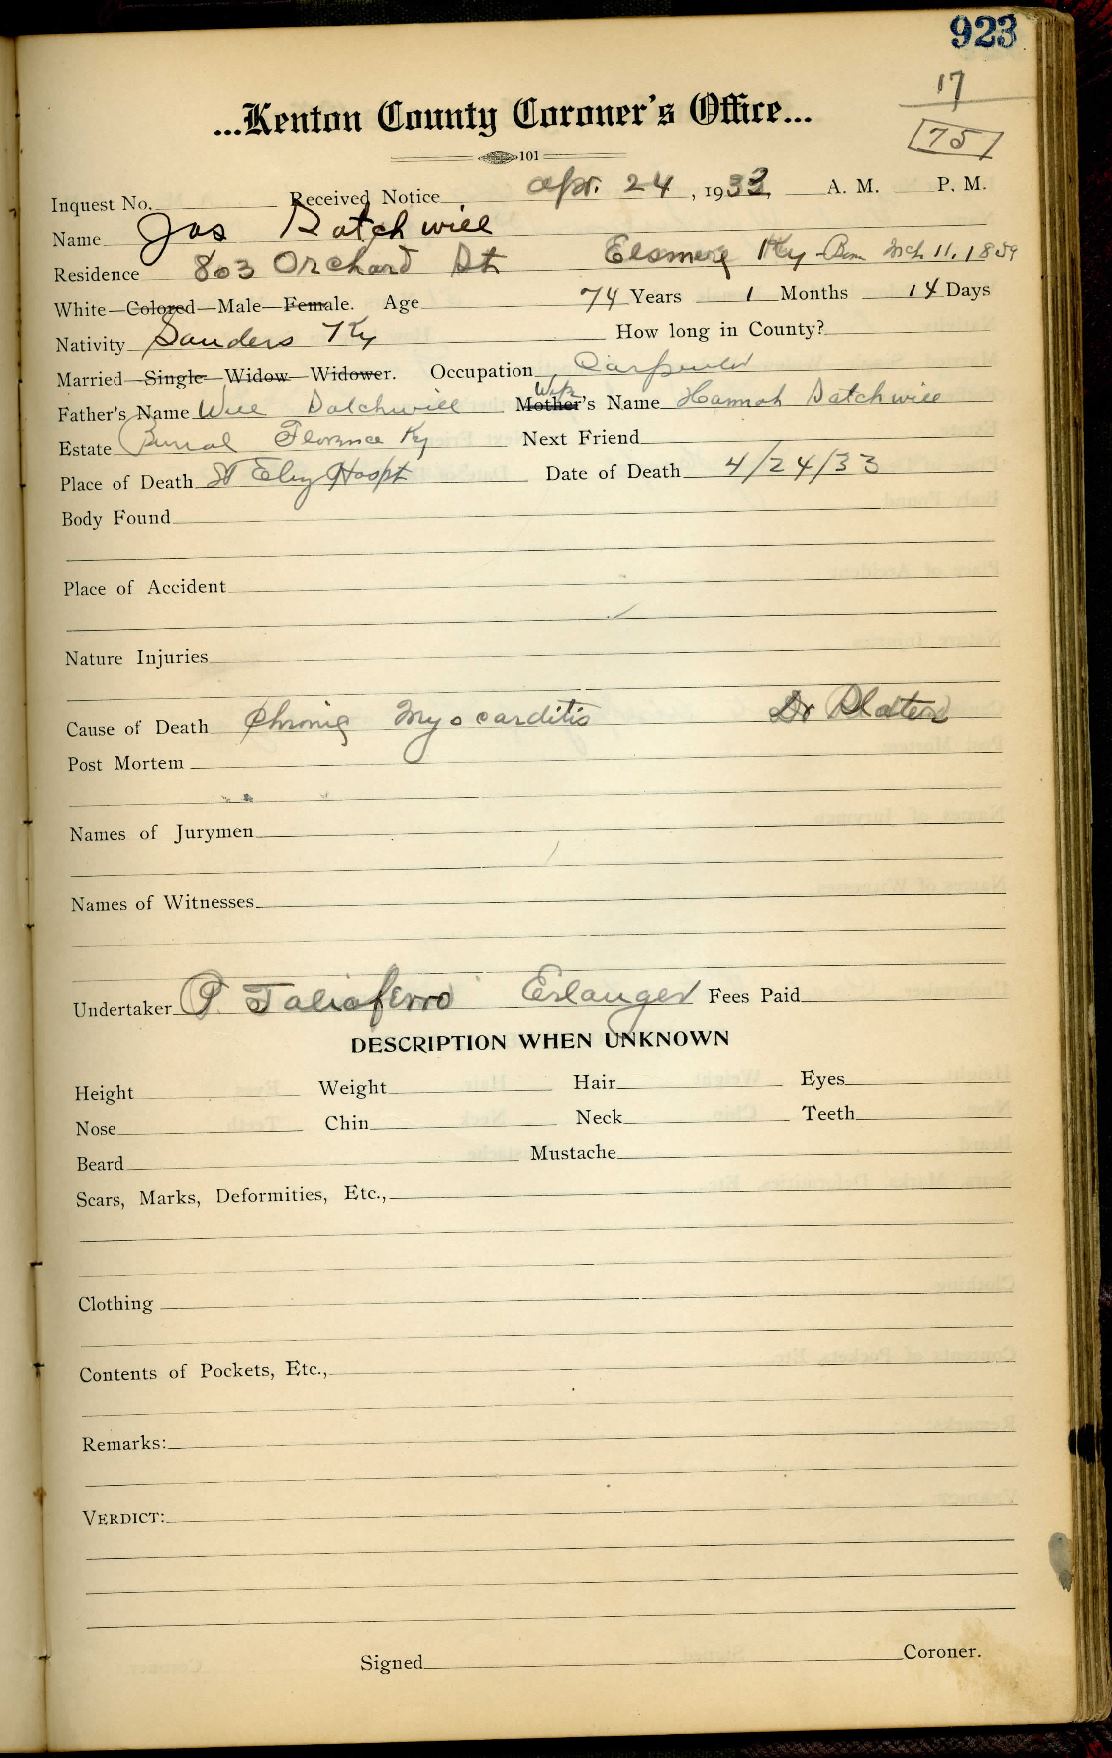 923
17
75
...Kenton County Coroner's Office...
101
Inquest No. Received Notice Apr. 24, 1933 A. M. P. M.
Name Jas Satchwill
Residence 803 Orchard St Elsmere Ky Born Mch 11, 1859
White—Colored—Male—Female. Age 74 Years 1 Months 14 Days
Nativity Sanders Ky How long in County?
Married—Single—Widow—Widower. Occupation Carpenter
Father's Name Will Satchwill Wife Mother's Name Hannah Satchwill
Estate Burial Florence Ky Next Friend
Place of Death St Eliz Hospt Date of Death 4/24/33
Body Found
Place of Accident
Nature Injuries
Cause of Death Chronic Myocarditis Dr
Post Mortem
Names of Jurymen
Names of Witnesses
Undertaker P. Taliaferro Erlanger Fees Paid
DESCRIPTION WHEN UNKNOWN
Height Weight Hair Eyes
Nose Chin Neck Teeth
Beard Mustache
Scars, Marks, Deformities, Etc.,
Clothing
Contents of Pockets, Etc.,
Remarks:
VERDICT:
Signed Coroner.